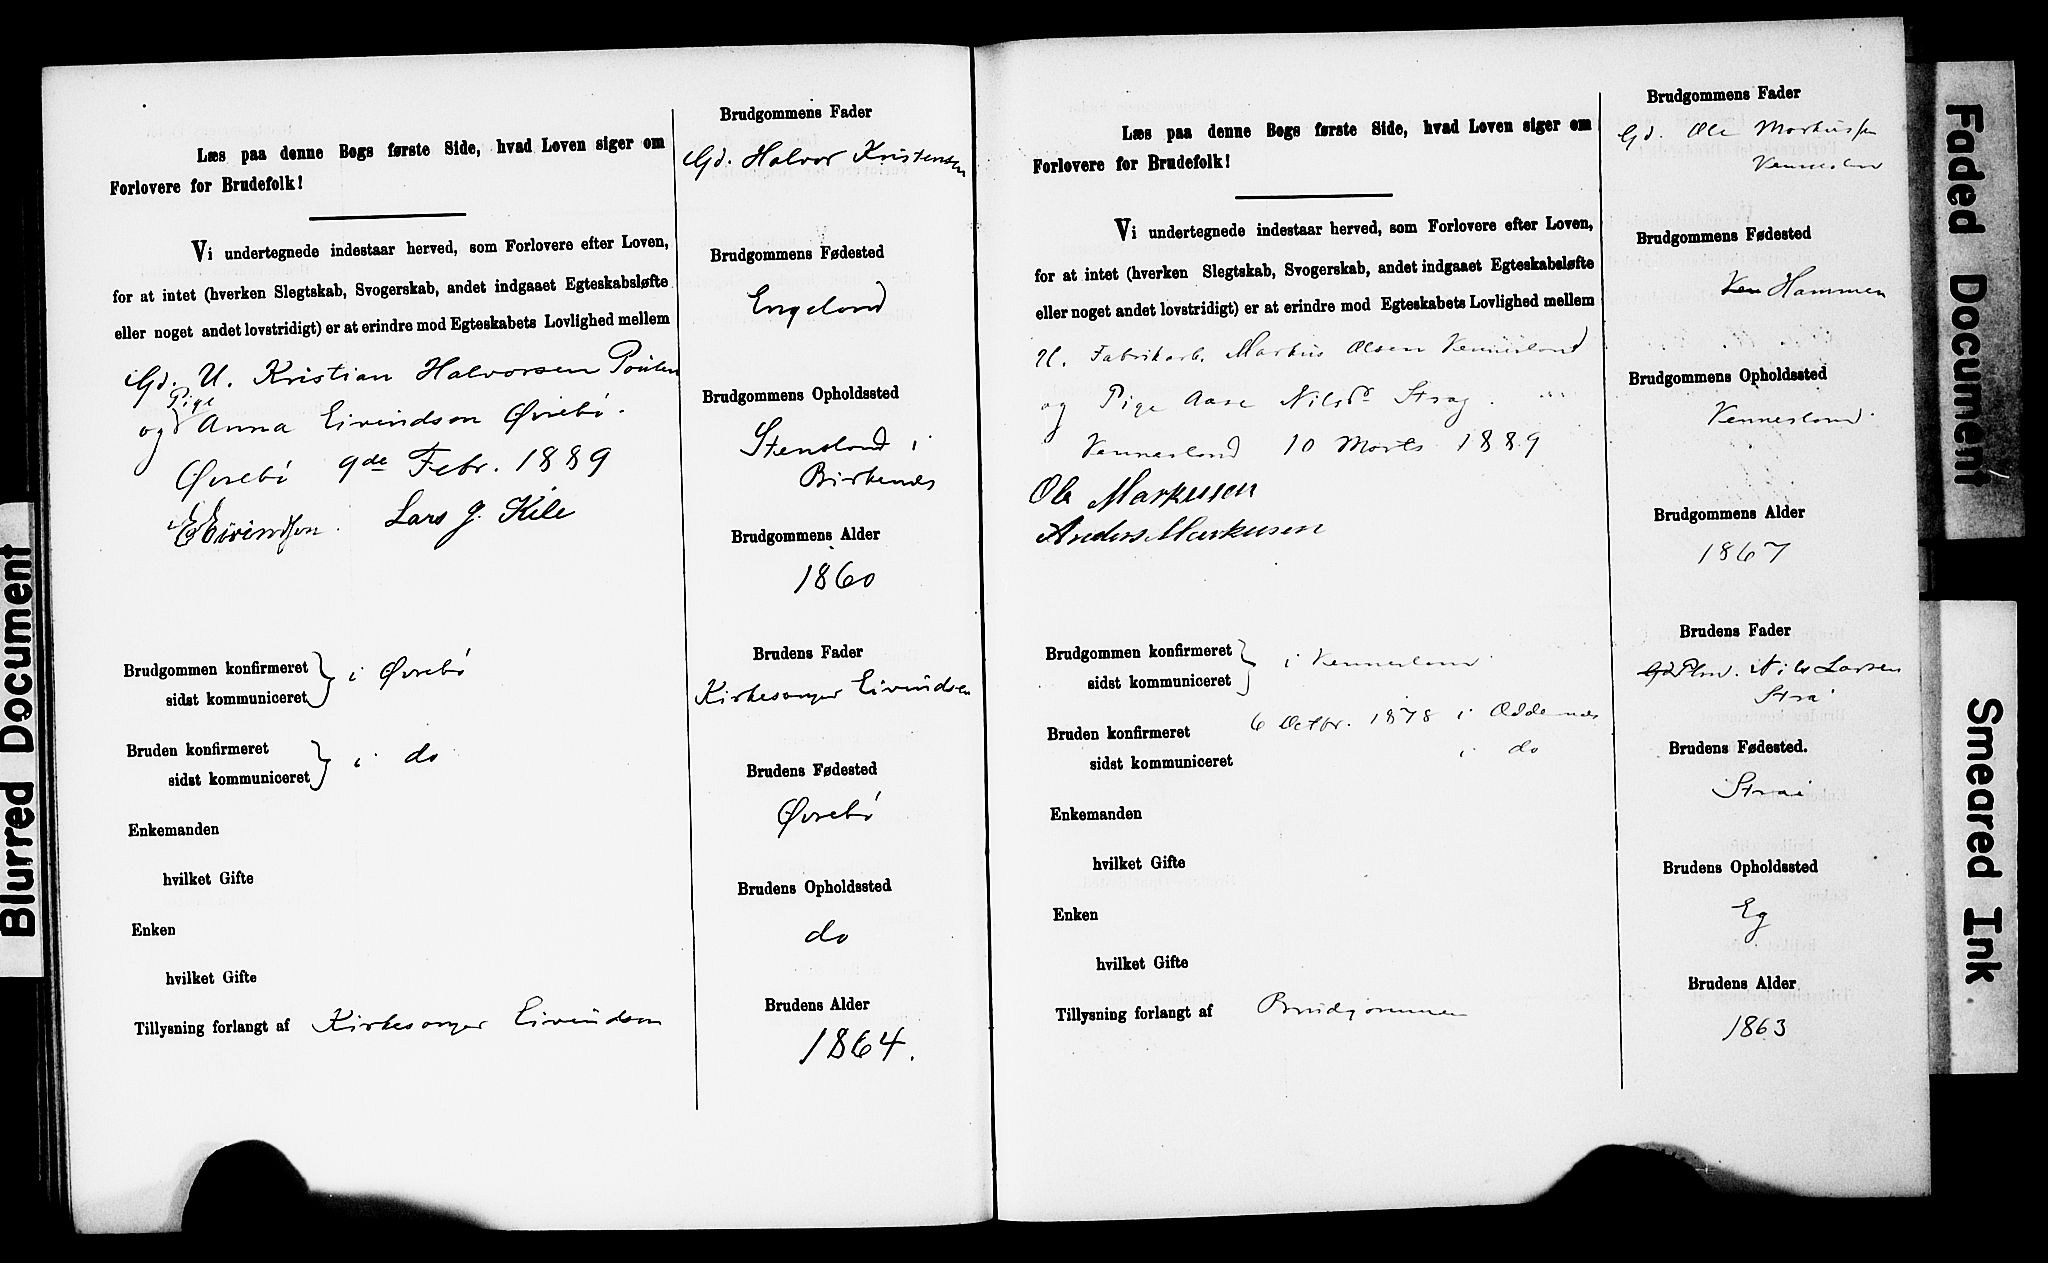 Læs paa denne Bogs første Side, hvad Loven siger om
Forlovere for Brudefolk!
Vi undertegnede indestaar herved, som Forlovere efter Loven,
for at intet (hverken Slegtskab, Svogerskab, andet indgaaet Egteskabsløfte
eller noget andet lovstridigt) er at erindre mod Egteskabets Lovlighed mellem
Gd. U. Kristian Halvorsen
Pige
og Anna Eivindson Øvrebø.
Øvrebø 9de Febr. 1889
E Eivindsen. Lars G. Kile
Brudgommen konfirmeret
sidst kommuniceret } i Øvrebø
Bruden konfirmeret
sidst kommuniceret } i do
Enkemanden
hvilket Gifte
Enken
hvilket Gifte
Tillysning forlangt af Kirkesanger Eivindsen
Brudgommens Fader
Gd. Halvor Kristensen
Brudgommens Fødested
Engeland
Brudgommens Opholdssted
Stensland i
Birkenes
Brudgommens Alder
1860
Brudens Fader
Kirkesanger Eivindsen
Brudens Fødested
Øvrebø
Brudens Opholdssted
do
Brudens Alder
1864.
Læs paa denne Bogs første Side, hvad Loven siger om
Forlovere for Brudefolk!
Vi undertegnede indestaar herved, som Forlovere efter Loven,
for at intet (hverken Slegtskab, Svogerskab, andet indgaaet Egteskabsløfte
eller noget andet lovstridigt) er at erindre mod Egteskabets Lovlighed mellem
U. Fabrikarb. Markus Olsen Vennesland
og Pige Aase Nilsdr Stray.
Vennesland 10 Marts 1889
Ole Markusen
Anders Markusen
Brudgommen konfirmeret
sidst kommuniceret } i Vennesland
Bruden konfirmeret 6 Octbr. 1878 i Oddernes
sidst kommuniceret i do
Enkemanden
hvilket Gifte
Enken
hvilket Gifte
Tillysning forlangt af Brudgommen
Brudgommens Fader
Gd. Ole Markussen
Vennesland
Brudgommens Fødested
Ven Hammen
Brudgommens Opholdssted
Vennesland.
Brudgommens Alder
1867
Brudens Fader
Gd Plm. Nils Larsen
Strai
Brudens Fødested.
Strai
Brudens Opholdssted
Eg
Brudens Alder
1863
Blurred Document
Faded Document
Smeared Ink